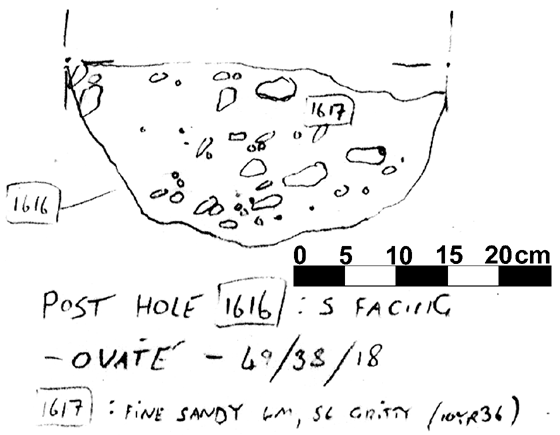 1617
1616
0 5 10 15 20cm
POST HOLE 1616 : S FACING
- OVATE - 49/38/18
1617 : FINE SANDY LM, SL GRITTY (10YR36)